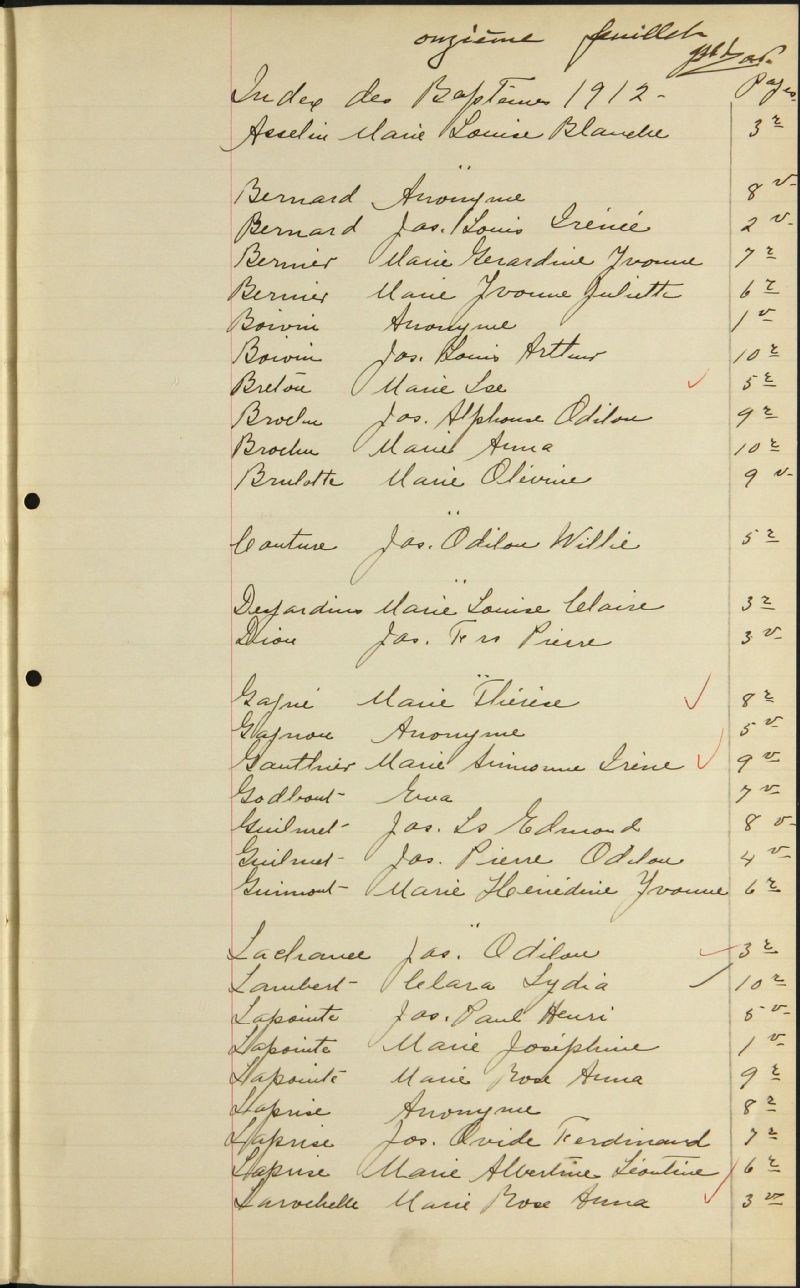 onzième feuillet
Index des Baptêmes 1912 - Pages
Asselin Marie Louise Blanche 3 r
"
Bernard Anonyme 8 v
Bernard Jos. Louis Irénée 2 v
Bernier Marie Gerardine Yvonne 7 r
Bernier Marie Yvonne Juliette 6 r
Boivin Anonyme 1 v
Boivin Jos. Louis Arthur 10 r
Breton Marie Lse 5 r
Brochu Jos. Alphonse Odilon 9 r
Brochu Marie Anna 10 r
Brulotte Marie Olévine 9 v
"
Couture Jos. Odilon Willie 5 r
"
Desjardins Marie Louise Claire 3 r
Dion Jos. Frs Pierre 3 v
"
Gagné Marie Thérèse 8 r
Gagnon Anonyme 5 v
Gauthier Marie Simonne Irène 9 v
Godbout Eva 7 v
Guilmet Jos. Ls Edmond 8 v
Guilmet Jos. Pierre Odilon 4 v
Guimont Marie Hénédine Yvonne 6 r
"
Lachance Jos. Odilon 3 r
Lambert Clara Lydia 10 r
Lapointe Jos. Paul Henri 5 v
Lapointe Marie Joséphine 1 v
Lapointe Marie Rose Anna 9 r
Laprise Anonyme 8 r
Laprise Jos. Ovide Ferdinand 7 r
Laprise Marie Albertine Léontine 6 r
Larochelle Marie Rose Anna 3 v